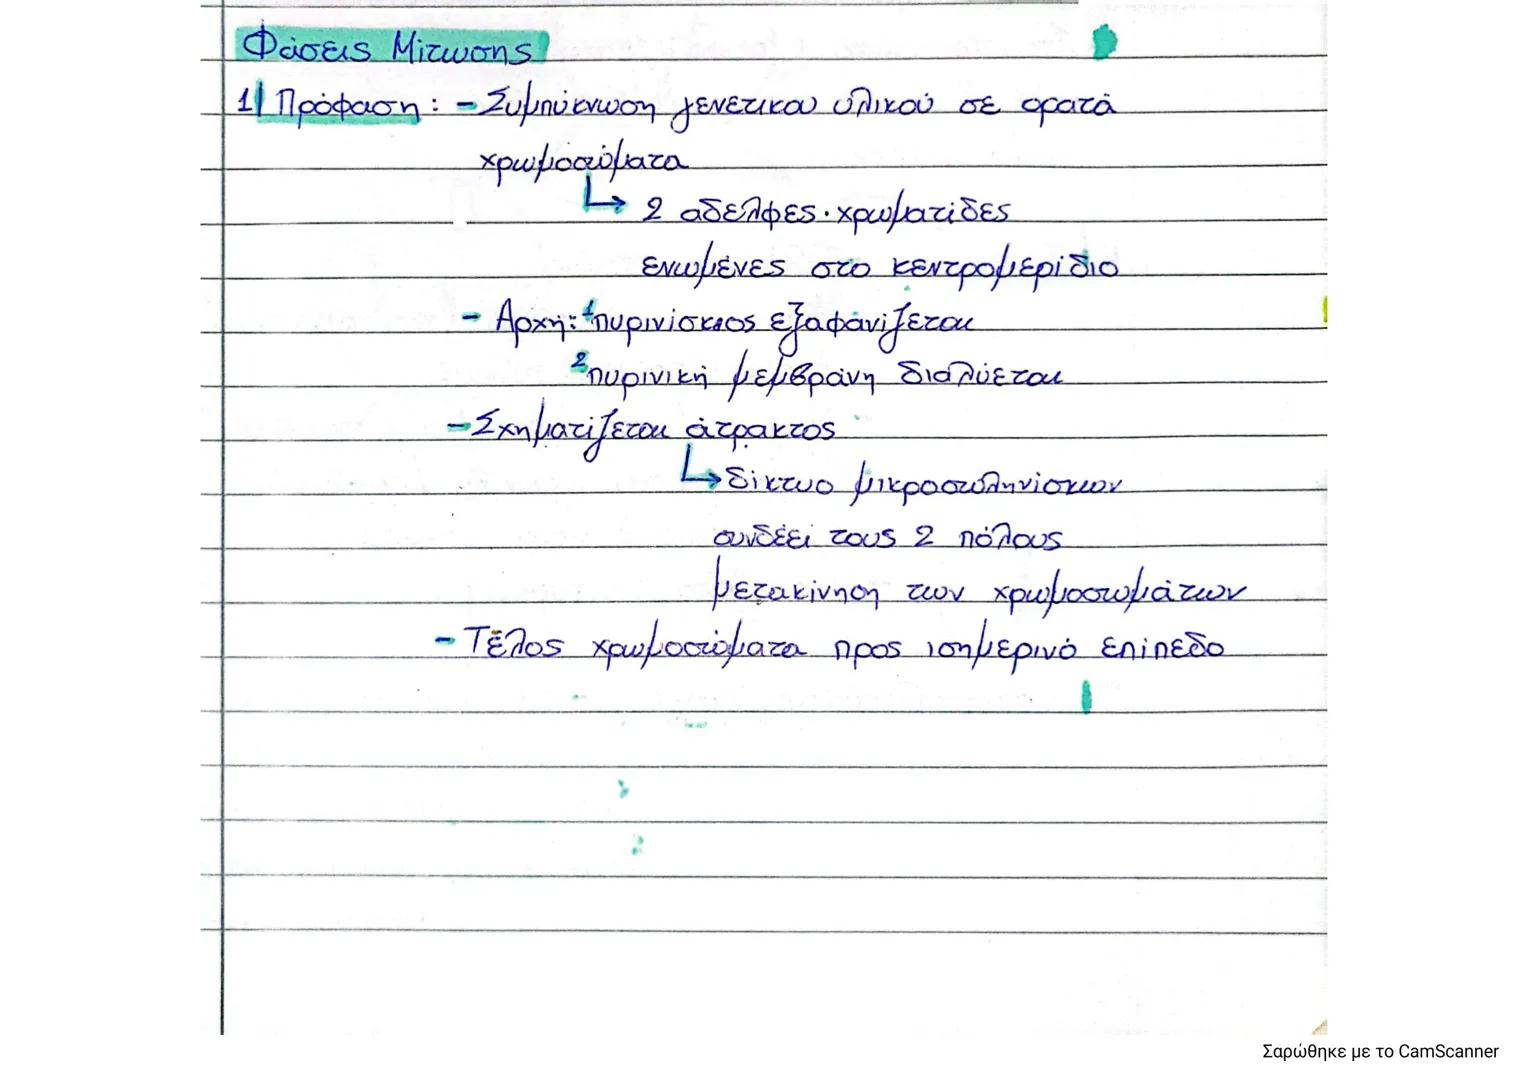 Φάσεις Μίτωσης
1| Πρόφαση: - Συμπύκνωση γενετικού υλικού σε ορατά
χρωμοσώματα
↳ 2 αδελφες χρωματίδες
ενωμένες στο κεντρομερίδιο
- Αρχή: 1 πυρινίσκος εξαφανίζεται
2 πυρινική μεμβράνη διαλύεται
- Σχηματίζεται άτρακτος
↳ δίκτυο μικροσωληνίσκων
συνδέει τους 2 πόλους
μετακίνηση των χρωμοσωμάτων
- Τέλος χρωμοσώματα προς ισημερινό επίπεδο
Σαρώθηκε με το CamScanner